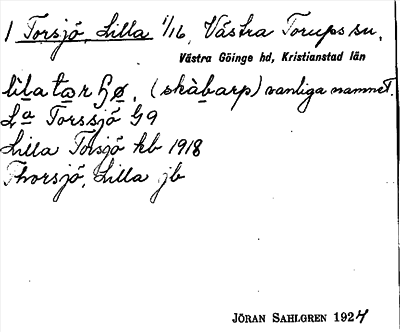 1 Torsjö, Lilla 1/16, Västra Torups sn.
Västra Göinge hd, Kristianstad län
(skàbarp) vanliga namnet.
La Torssjö G9
Lilla Torsjö kb 1918
Thorsjö, Lilla jb
JÖRAN SAHLGREN 1924